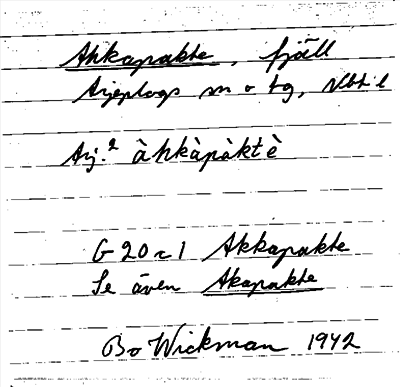 Ahkapakte, fjäll
Arjeplogs sn o tg, Vbt. l
Arj.² àhkàpàktè
G 20 r 1 Akkapakte
Se även Akapakte
Bo Wickman 1942